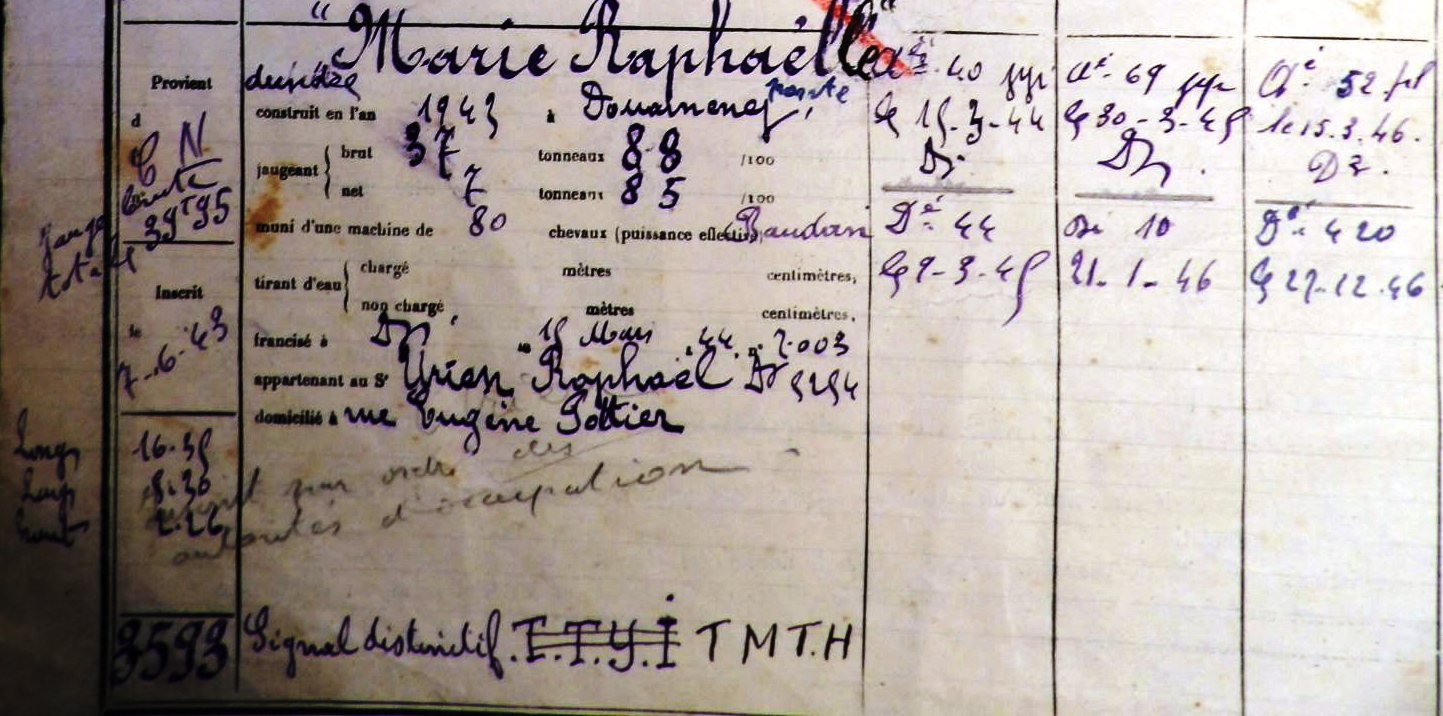 "Marie Raphaëlle"
Provient
d
C N
dundee
construit en l'an 1943 à Douarnenez,
jaugeant { brut 37 tonneaux 88 /100
net 7 tonneaux 85 /100
muni d'une machine de 80 chevaux (puissance effective) Baudouin
tirant d'eau { chargé mètres centimètres,
non chargé, mètres centimètres,
francisé à Dz, le 15 Mars 44, n° 2.003
appartenant au Sr Urien Raphaël Dz
domicilié à rue Eugène Pottier
par ordre des
autorités d'occupation
Jauge
totale
brute
39T95
Inscrit
le
7-6-43
Long 16.35
Larg
Haut 2.26
3593
Signal distinctif. T.T.Y.I T M T.H
40
le 15-3-44
Dz.
Dé 44
le 9-3-45
69
le 30-3-45
Dz.
10
21-1-46
52
le 15.3.46.
Dz.
Dé 420
le 27-12-46